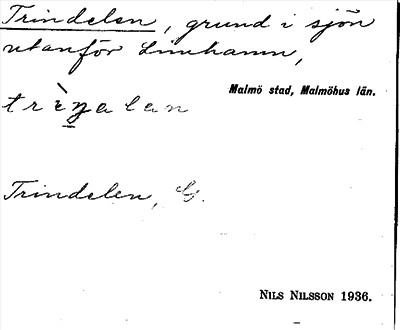 Trindelen, grund i sjön
utanför Limhamn,
Malmö stad, Malmöhus län.
trìŋalen
Trindelen,
NILS NILSSON 1936.